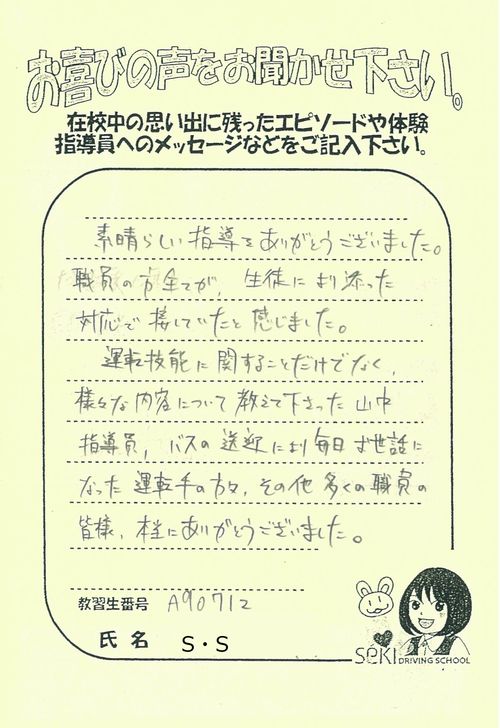 お喜びの声をお聞かせ下さい。
在校中の思い出に残ったエピソードや体験
指導員へのメッセージなどをご記入下さい。
素晴らしい指導をありがとうございました。
職員の方全てが、生徒により添った
対応で接していたと感じました。
運転技能に関することだけでなく、
様々な内容について教えて下さった山中
指導員、バスの送迎により毎日お世話に
なった運転手の方々、その他多くの職員の
皆様、本当にありがとうございました。
教習生番号 A90712
氏名 S・S
SeKI DRIVING SCHOOL